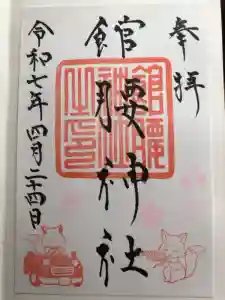 奉拝
館腰神社
令和七年四月二十四日
館腰
神社
之印